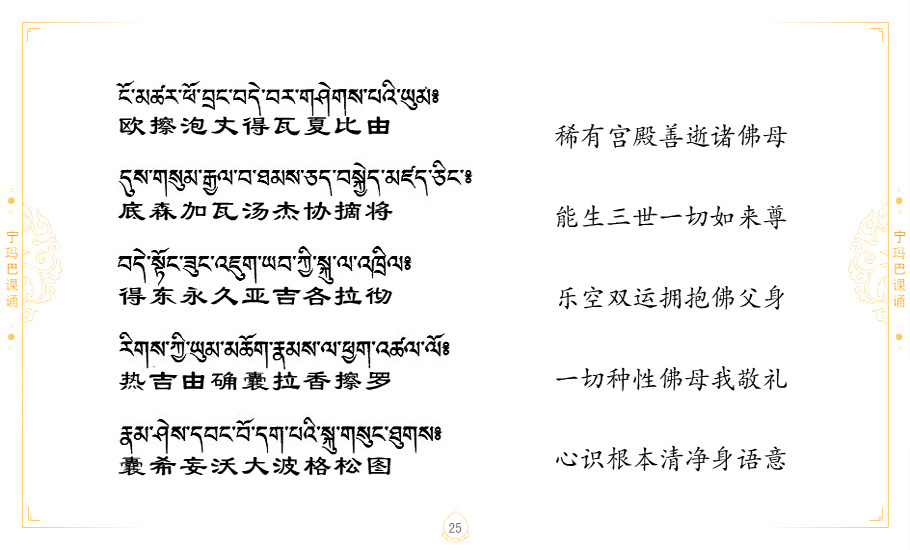 ངོ་མཚར་ཕོ་བྲང་བདེ་བར་གཤེགས་པའི་ཡུམ༔
欧擦泡丈得瓦夏比由
稀有宫殿善逝诸佛母
དུས་གསུམ་རྒྱལ་བ་ཐམས་ཅད་བསྐྱེད་མཛད་ཅིང་༔
底森加瓦汤杰协摘将
能生三世一切如来尊
བདེ་སྟོང་ཟུང་འཇུག་ཡབ་ཀྱི་སྐུ་ལ་འཁྲིལ༔
得东永久亚吉各拉彻
乐空双运拥抱佛父身
རིགས་ཀྱི་ཡུམ་མཆོག་རྣམས་ལ་ཕྱག་འཚལ་ལོ༔
热吉由确囊拉香擦罗
一切种性佛母我敬礼
རྣམ་ཤེས་དབང་པོ་དག་པའི་སྐུ་གསུང་ཐུགས༔
囊希妄沃大波格松图
心识根本清净身语意
宁玛巴课诵
宁玛巴课诵
25